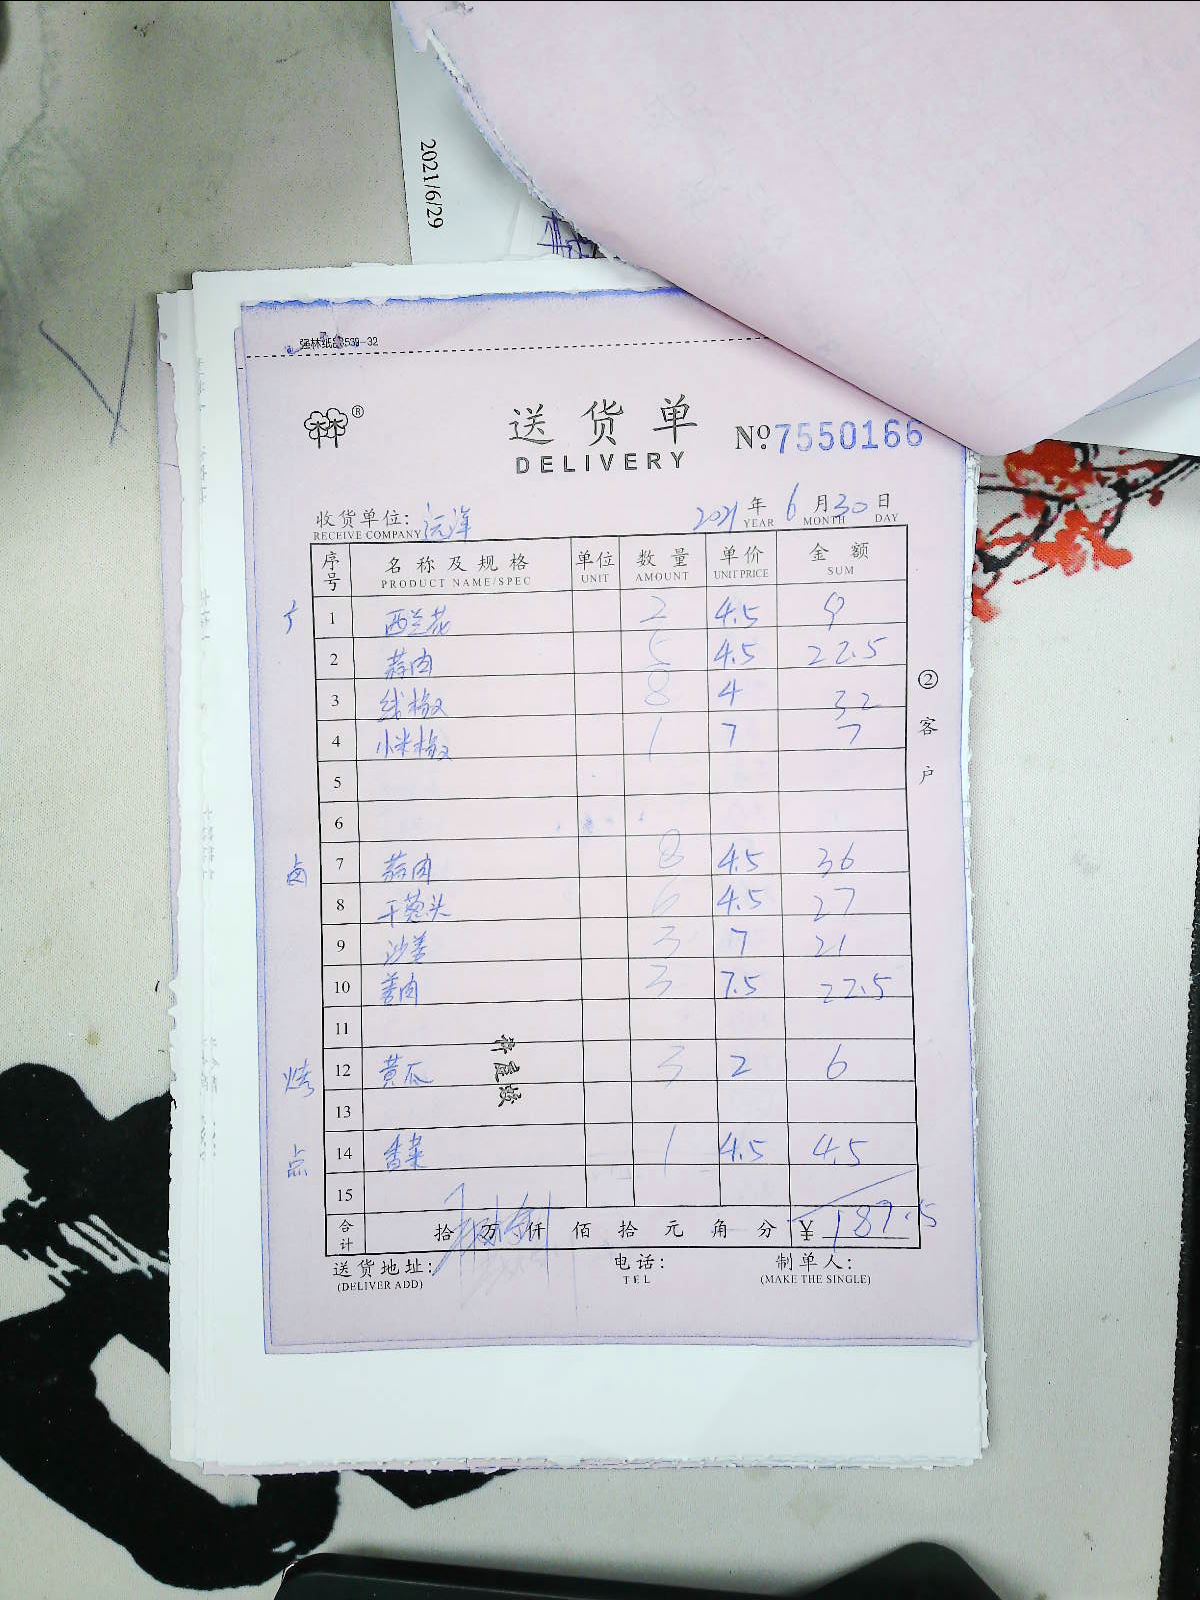 2021/6/29
送货单
DELIVERY
№ 7550166
收货单位: 远洋 2021年 6月30日
RECEIVE COMPANY YEAR MONTH DAY
序号 名称及规格 单位 数量 单价 金额
PRODUCT NAME/SPEC UNIT AMOUNT UNIT PRICE SUM
1 西兰花 2 4.5 9
2 蒜肉 5 4.5 22.5
3 线椒 8 4 32
4 小米椒 1 7 7
5
6
卤 7 蒜肉 8 4.5 36
8 干葱头 6 4.5 27
9 沙姜 3 7 21
10 姜肉 3 7.5 22.5
11
烤 12 黄瓜 3 2 6
13
点 14 香菜 1 4.5 4.5
15
合计 拾 万 仟 佰 拾 元 角 分 ¥ 187.5
送货地址: 电话: 制单人:
(DELIVER ADD) TEL (MAKE THE SINGLE)
②客户